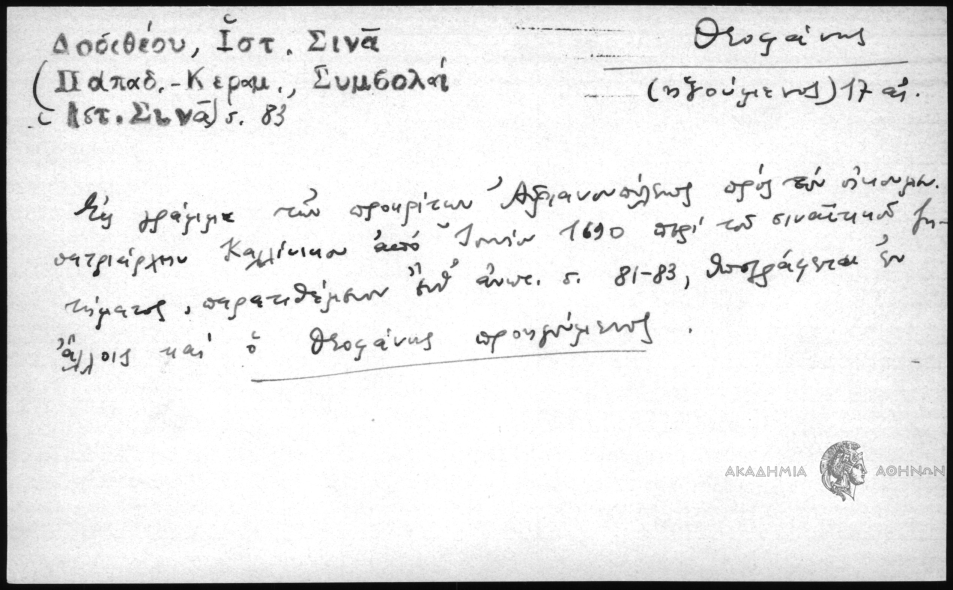 Δοσιθέου, Ἱστ. Σινᾶ
(Παπαδ.-Κεραμ., Συμβολαί
Ἱστ. Σινᾶ) σ. 83
Θεοφάνης
(ηγούμενος) 17 αἰ.
Εἰς γράμμα τῶν προκρίτων Ἀδριανουπόλεως πρός τόν οἰκουμεν.
πατριάρχην Καλλίνικον ἀπό Ἰουνίου 1690 περί τοῦ σιναϊτικοῦ ζη-
τήματος, παρατιθέμενον ἐνθ' ἀνωτ. σ. 81-83, ὑπογράφεται ἐν
ἄλλοις καί ὁ Θεοφάνης προηγούμενος.
ΑΚΑΔΗΜΙΑ ΑΘΗΝΩΝ